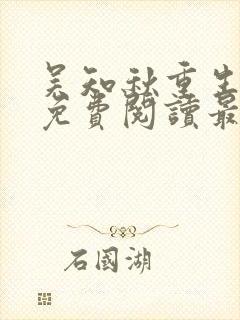 吴知秋重生
免費閱讀最
石國湖